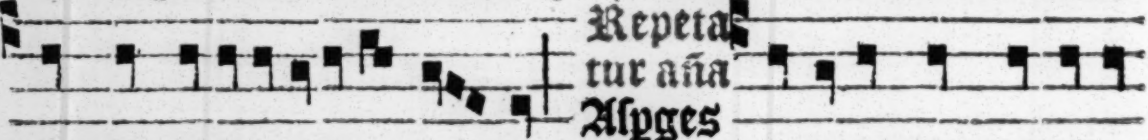 Repeta
tur aña
Aſpges